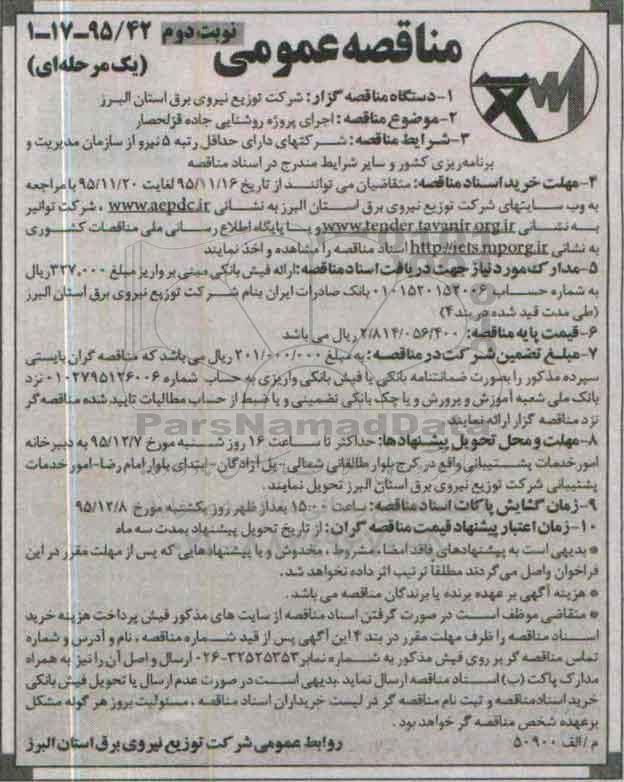 مناقصه عمومی
نوبت دوم
۱-۱۷-۹۵/۴۲
(یک مرحله‌ای)
۱-دستگاه مناقصه گزار: شرکت توزیع نیروی برق استان البرز
۲-موضوع مناقصه: اجرای پروژه روشنایی جاده قزلحصار
۳-شرایط مناقصه: شرکتهای دارای حداقل رتبه ۵ نیرو از سازمان مدیریت و
برنامه‌ریزی کشور و سایر شرایط مندرج در اسناد مناقصه
۴-مهلت خرید اسناد مناقصه: متقاضیان می توانند از تاریخ ۹۵/۱۱/۱۶ لغایت ۹۵/۱۱/۲۰ با مراجعه
به وب سایتهای شرکت توزیع نیروی برق استان البرز به نشانی www.aepdc.ir ، شرکت توانیر
به نشانی www.tender.tavanir.org.ir و یا پایگاه اطلاع رسانی ملی مناقصات کشوری
به نشانی http://iets.mporg.ir اسناد مناقصه را مشاهده و اخذ نمایند
۵-مدارک مورد نیاز جهت دریافت اسناد مناقصه: ارائه فیش بانکی مبنی بر واریز مبلغ ۳۲۷,۰۰۰ ریال
به شماره حساب ۰۱۰۱۵۲۰۱۵۲۰۰۶ بانک صادرات ایران بنام شرکت توزیع نیروی برق استان البرز
(طی مدت قید شده در بند ۴)
۶-قیمت پایه مناقصه: ۲/۸۱۴/۰۵۶/۴۰۰ ریال می باشد
۷-مبلغ تضمین شرکت در مناقصه: به مبلغ ۲۰۱/۰۰۰/۰۰۰ ریال می باشد که مناقصه گران بایستی
سپرده مذکور را بصورت ضمانتنامه بانکی یا فیش بانکی واریزی به حساب شماره ۰۱۰۲۷۹۵۱۲۶۰۰۶ نزد
بانک ملی شعبه آموزش و پرورش و یا چک بانکی تضمینی و یا ضبط از حساب مطالبات تایید شده مناقصه گر
نزد مناقصه گزار ارائه نمایند
۸-مهلت و محل تحویل پیشنهادها: حداکثر تا ساعت ۱۶ روز شنبه مورخ ۹۵/۱۲/۷ به دبیرخانه
امور خدمات پشتیبانی واقع در کرج بلوار طالقانی شمالی-پل آزادگان-ابتدای بلوار امام رضا-امور خدمات
پشتیبانی شرکت توزیع نیروی برق استان البرز تحویل نمایند.
۹-زمان گشایش پاکات اسناد مناقصه: ساعت ۱۵:۰۰ بعداز ظهر روز یکشنبه مورخ ۹۵/۱۲/۸
۱۰-زمان اعتبار پیشنهاد قیمت مناقصه گران: از تاریخ تحویل پیشنهاد بمدت سه ماه
* بدیهی است به پیشنهادهای فاقد امضا، مشروط، مخدوش و یا پیشنهادهایی که پس از مهلت مقرر در این
فراخوان واصل می گردند مطلقاً ترتیب اثر داده نخواهد شد.
* هزینه آگهی بر عهده برنده یا برندگان مناقصه می باشد.
* متقاضی موظف است در صورت گرفتن اسناد مناقصه از سایت های مذکور فیش پرداخت هزینه خرید
اسناد مناقصه را ظرف مهلت مقرر در بند ۴ این آگهی پس از قید شماره مناقصه، نام و آدرس و شماره
تماس مناقصه گر بر روی فیش مذکور به شماره نمابر ۳۲۵۲۵۳۵۳-۰۲۶ ارسال و اصل آن را نیز به همراه
مدارک پاکت (ب) اسناد مناقصه ارسال نماید. بدیهی است در صورت عدم ارسال یا تحویل فیش بانکی
خرید اسناد مناقصه و ثبت نام مناقصه گر در لیست خریداران اسناد مناقصه، مسئولیت بروز هر گونه مشکل
بر عهده شخص مناقصه گر خواهد بود.
روابط عمومی شرکت توزیع نیروی برق استان البرز
م/الف ۵۰۹۰۰
ParsNamadData